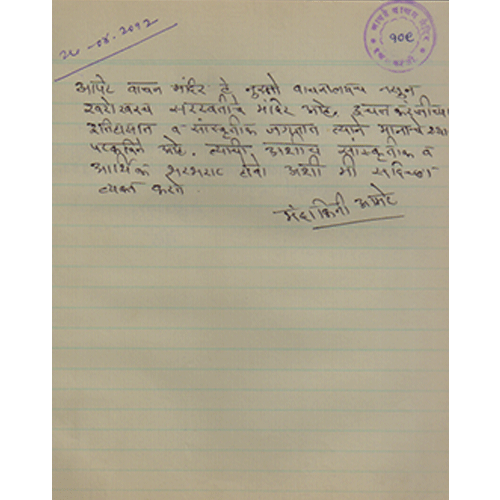 २८-०४.२०१२
आपटे वाचन मंदिर
१०९
आपटे वाचन मंदिर हे नुसते वाचनालयच नसून
खरोखरच सरस्वतीचे मंदिर आहे. इचलकरंजीच्या
इतिहासात व सांस्कृतीक जगतात त्याने मानाचे स्था
पटकाविले आहे. त्याची अशीच सांस्कृतीक व
आर्थिक भरभराट होवो अशी मी सदिच्छा
व्यक्त करते.
मंदाकिनी आमटे